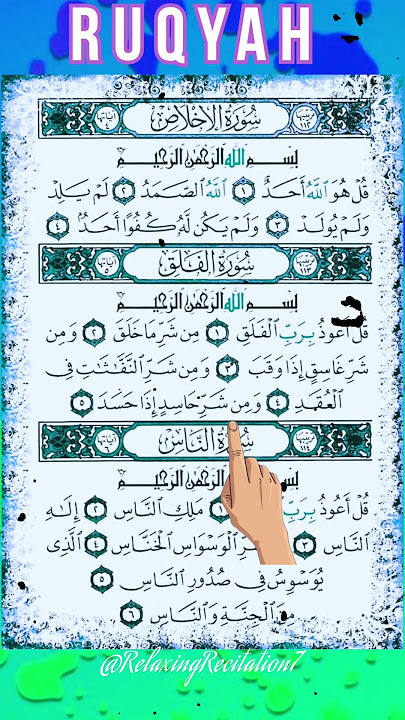 RUQYAH
سُورَةُ الإِخْلَاصِ
بِسْمِ ٱللَّهِ ٱلرَّحْمَٰنِ ٱلرَّحِيمِ
قُلْ هُوَ ٱللَّهُ أَحَدٌ ١ ٱللَّهُ ٱلصَّمَدُ ٢ لَمْ يَلِدْ
وَلَمْ يُولَدْ ٣ وَلَمْ يَكُن لَّهُۥ كُفُوًا أَحَدٌۢ ٤
سُورَةُ الفَلَقِ
بِسْمِ ٱللَّهِ ٱلرَّحْمَٰنِ ٱلرَّحِيمِ
قُلْ أَعُوذُ بِرَبِّ ٱلْفَلَقِ ١ مِن شَرِّ مَا خَلَقَ ٢ وَمِن
شَرِّ غَاسِقٍ إِذَا وَقَبَ ٣ وَمِن شَرِّ ٱلنَّفَّٰثَٰتِ فِى
ٱلْعُقَدِ ٤ وَمِن شَرِّ حَاسِدٍ إِذَا حَسَدَ ٥
سُورَةُ النَّاسِ
بِسْمِ ٱللَّهِ ٱلرَّحْمَٰنِ ٱلرَّحِيمِ
قُلْ أَعُوذُ بِرَبِّ ١ مَلِكِ ٱلنَّاسِ ٢ إِلَٰهِ
ٱلنَّاسِ ٣ ٱلْوَسْوَاسِ ٱلْخَنَّاسِ ٤ ٱلَّذِى
يُوَسْوِسُ فِى صُدُورِ ٱلنَّاسِ ٥
مِنَ ٱلْجِنَّةِ وَٱلنَّاسِ ٦
@RelaxingRecitation7